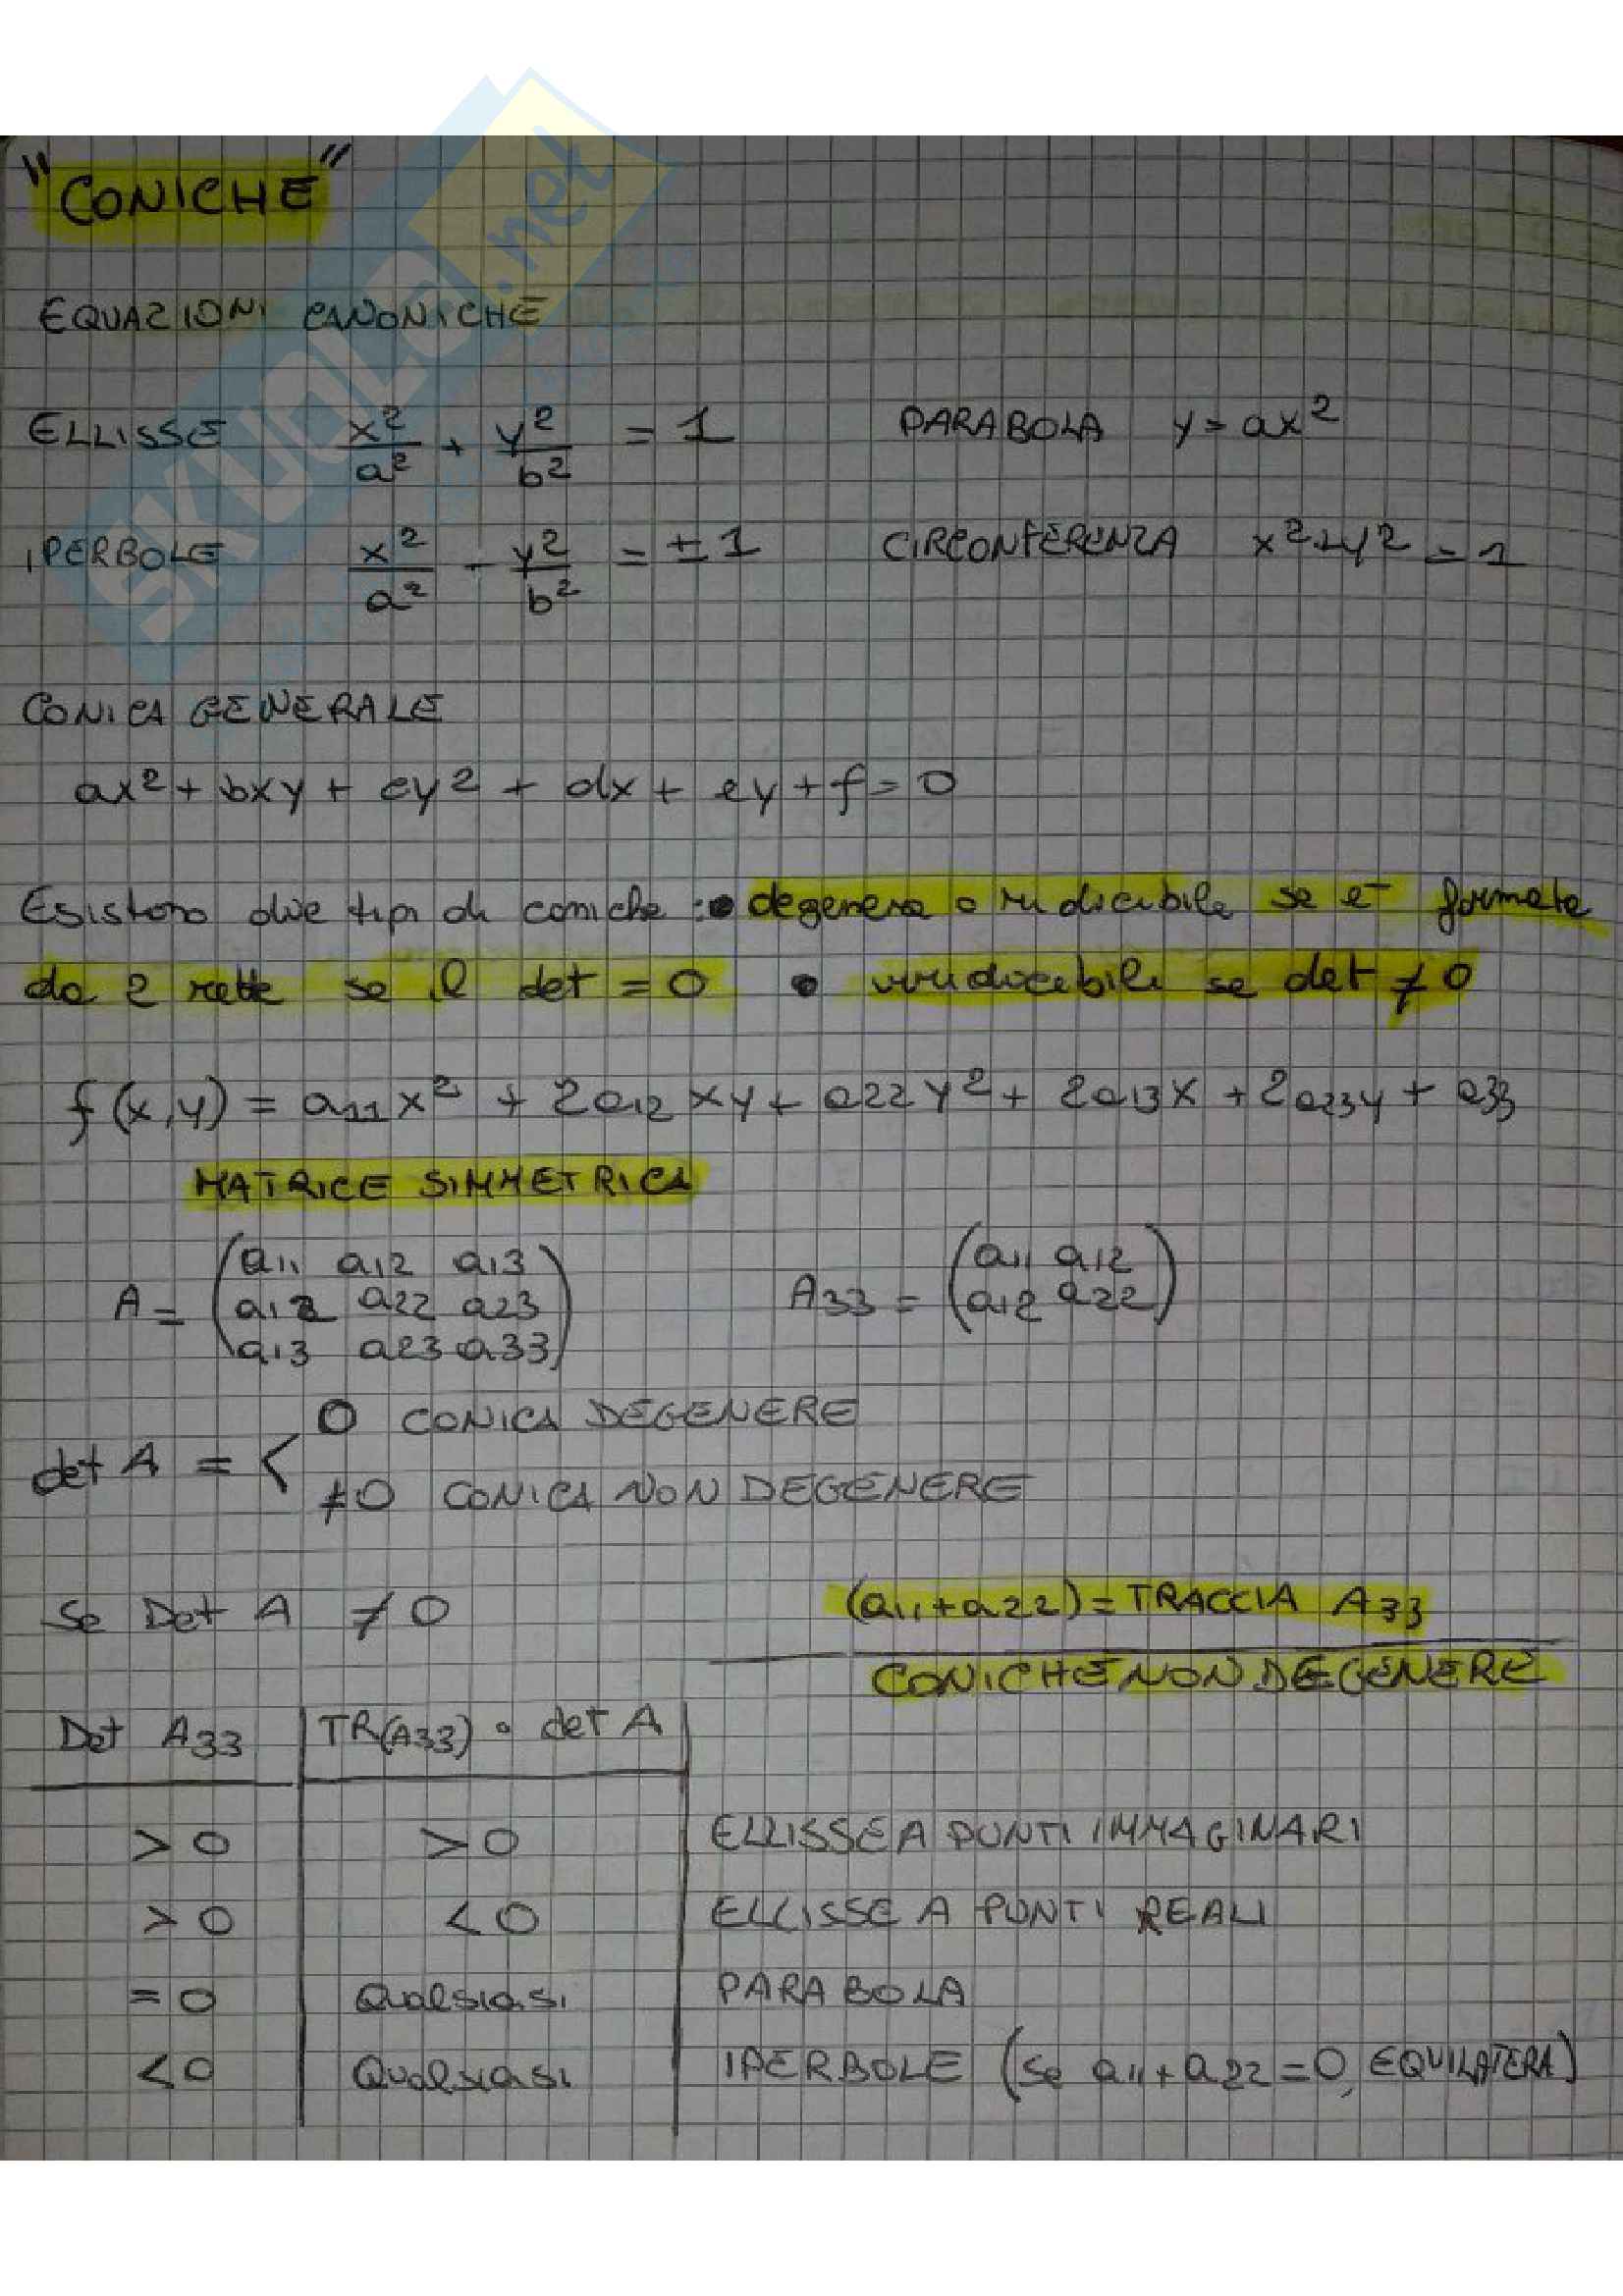 SKUOLA.net
"CONICHE"
EQUAZIONI CANONICHE
ELLISSE x²/a² + y²/b² = 1 PARABOLA y = ax²
IPERBOLE x²/a² - y²/b² = ±1 CIRCONFERENZA x²+y² = 1
CONICA GENERALE
ax² + bxy + cy² + dx + ey + f = 0
Esistono due tipi di coniche : • degenere o riducibile se e' formata
da 2 rette se il det = 0 • irriducibili se det ≠ 0
f(x,y) = a11x² + 2a12xy + a22y² + 2a13x + 2a23y + a33
MATRICE SIMMETRICA
A = (a11 a12 a13 A33 = (a11 a12
a12 a22 a23 a12 a22)
a13 a23 a33)
0 CONICA DEGENERE
det A = <
≠0 CONICA NON DEGENERE
Se Det A ≠ 0 (a11+a22) = TRACCIA A33
CONICHE NON DEGENERE
Det A33 TR(A33) • det A
>0 >0 ELLISSE A PUNTI IMMAGINARI
>0 <0 ELLISSE A PUNTI REALI
=0 Qualsiasi PARABOLA
<0 Qualsiasi IPERBOLE (se a11+a22=0, EQUILATERA)